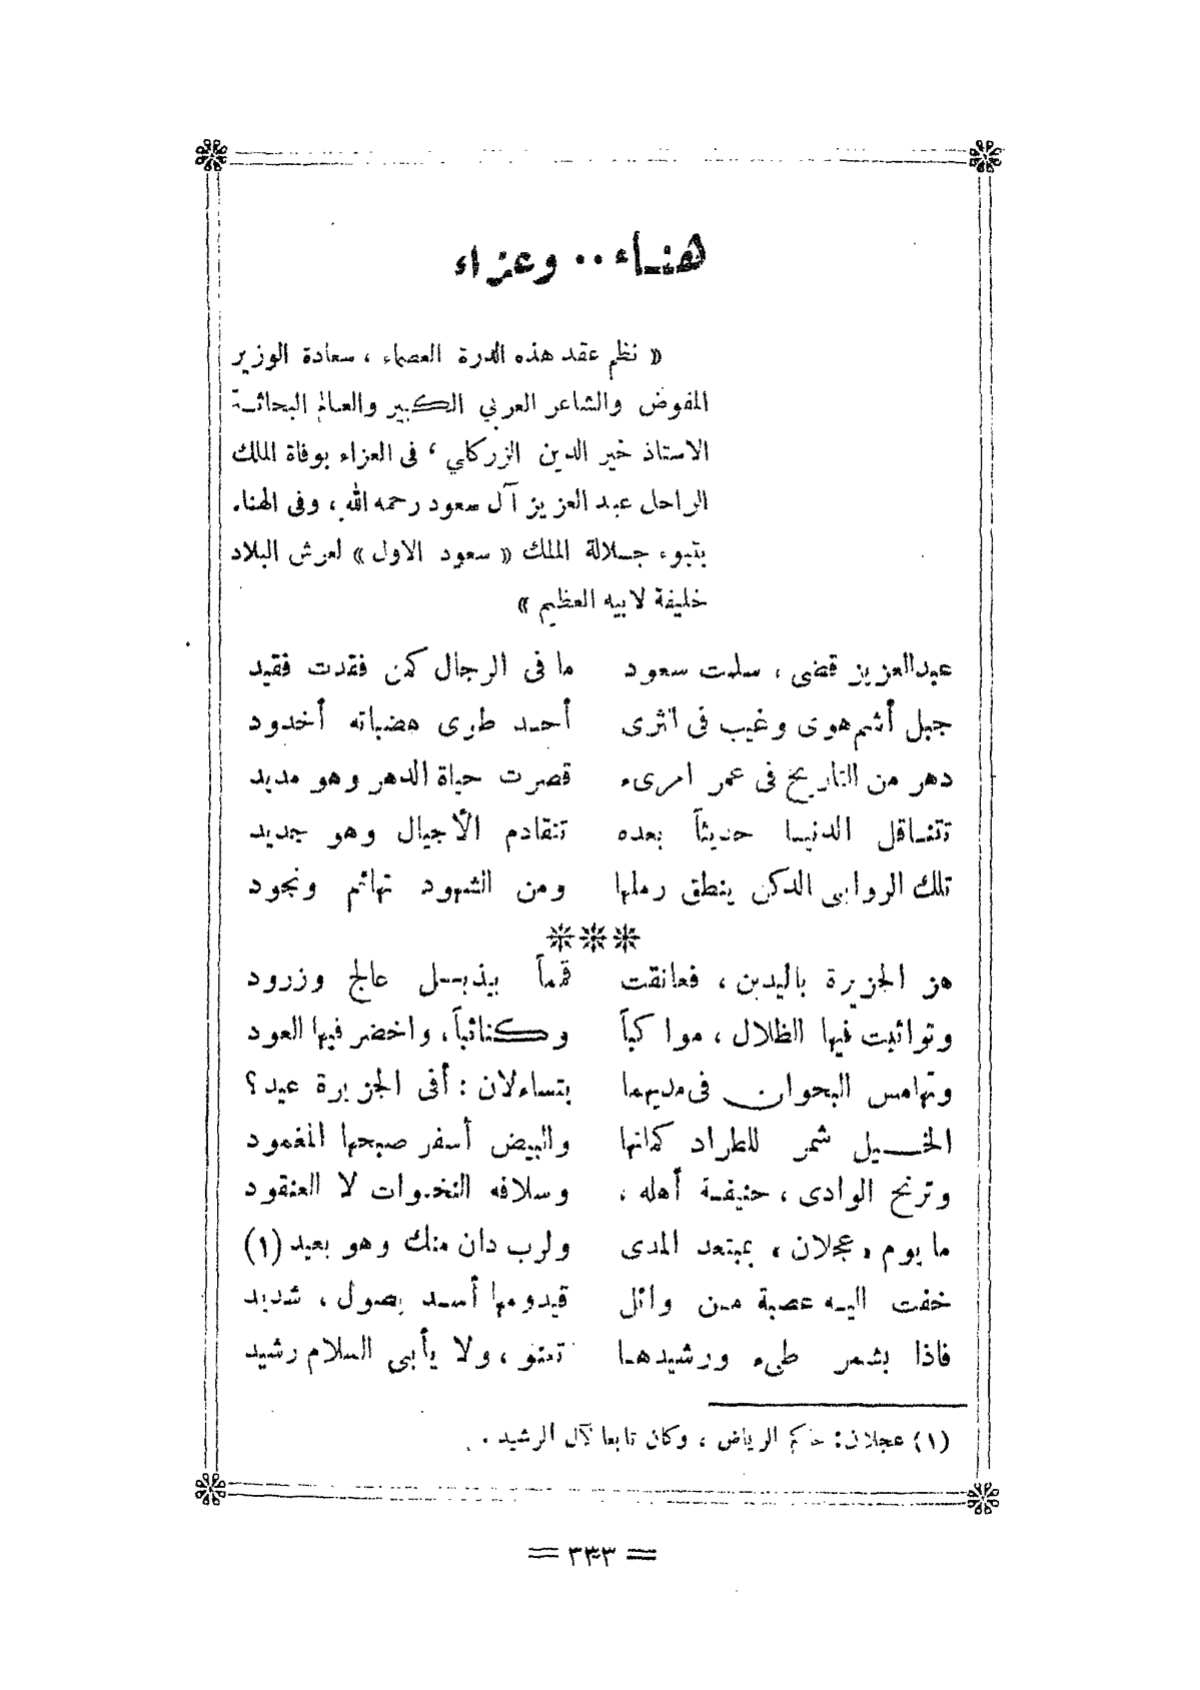 هناء .. وعزاء
« نظم عقد هذه الدرة العصماء ، سعادة الوزير
المفوض والشاعر العربي الكبير والعالم البحاثة
الاستاذ خير الدين الزركلي ، فى العزاء بوفاة الملك
الراحل عبد العزيز آل سعود رحمه الله ، وفى الهناء
بتبوء جلالة الملك « سعود الاول » لعرش البلاد
خليفة لابيه العظيم »
عبدالعزيز قضى ، سلمت سعود ما فى الرجال كمن فقدت فقيد
جبل أشم هوى وغيب فى الثرى أحد طوى هضباته أخدود
دهر من التاريخ فى عمر امرىء قصرت حياة الدهر وهو مديد
تتناقل الدنيا حديثاً بعده تتقادم الأجيال وهو جديد
تلك الروابى الدكن ينطق رملها ومن الشهود تهائم ونجود
***
هز الجزيرة باليدين ، فعانقت قمماً بيذبل عالج وزرود
وتواثبت فيها الظلال ، مواكباً وكتائباً ، واخضر فيها العود
وتهامس البحران فى مديهما يتساءلان : أفى الجزيرة عيد ؟
الخيل شمر للطراد كماتها والبيض أسفر صبحها المغمود
وترنح الوادى ، حنيفة أهله ، وسلافه النخوات لا العنقود
ما يوم « عجلان » بمبتعد المدى ولرب دان منك وهو بعيد (١)
خفت اليه عصبة من وائل قيدومها أسد يصول ، شديد
فاذا بشمر طىء ورشيدها تعنو ، ولا يأبى السلام رشيد
(١) عجلان : حاكم الرياض ، وكان تابعا لآل الرشيد .
= ٣٣٣ =